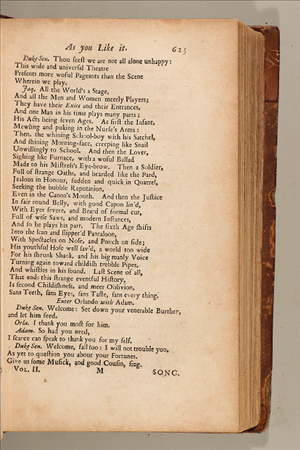 As you Like it. 625
Duke Sen. Thou seest we are not all alone unhappy:
This wide and universal Theatre
Presents more woful Pageants than the Scene
Wherein we play.
Jaq. All the World's a Stage,
And all the Men and Women meerly Players;
They have their Exits and their Entrances,
And one Man in his time plays many parts:
His Acts being seven Ages. At first the Infant,
Mewling and puking in the Nurse's Arms:
Then, the whining School-boy with his Satchel,
And shining Morning-face, creeping like Snail
Unwillingly to School. And then the Lover,
Sighing like Furnace, with a woful Ballad
Made to his Mistress's Eye-brow. Then a Soldier,
Full of strange Oaths, and bearded like the Pard,
Jealous in Honour, sudden and quick in Quarrel,
Seeking the bubble Reputation,
Even in the Canon's Mouth. And then the Justice
In fair round Belly, with good Capon lin'd,
With Eyes severe, and Beard of formal cut,
Full of wise Saws, and modern Instances,
And so he plays his part. The sixth Age shifts
Into the lean and slipper'd Pantaloon,
With Spectacles on Nose, and Pouch on side;
His youthful Hose well sav'd, a world too wide
For his shrunk Shank, and his big manly Voice
Turning again toward childish trebble Pipes,
And whistles in his sound. Last Scene of all,
That ends this strange eventful History,
Is second Childishness, and meer Oblivion,
Sans Teeth, sans Eyes, sans Taste, sans every thing.
Enter Orlando with Adam.
Duke Sen. Welcome: Set down your venerable Burthen,
and let him feed.
Orla. I thank you most for him.
Adam. So had you need,
I scarce can speak to thank you for my self.
Duke Sen. Welcome, fall too: I will not trouble you,
As yet to question you about your Fortunes.
Give us some Musick, and good Cousin, sing.
VOL. II. M SONG.